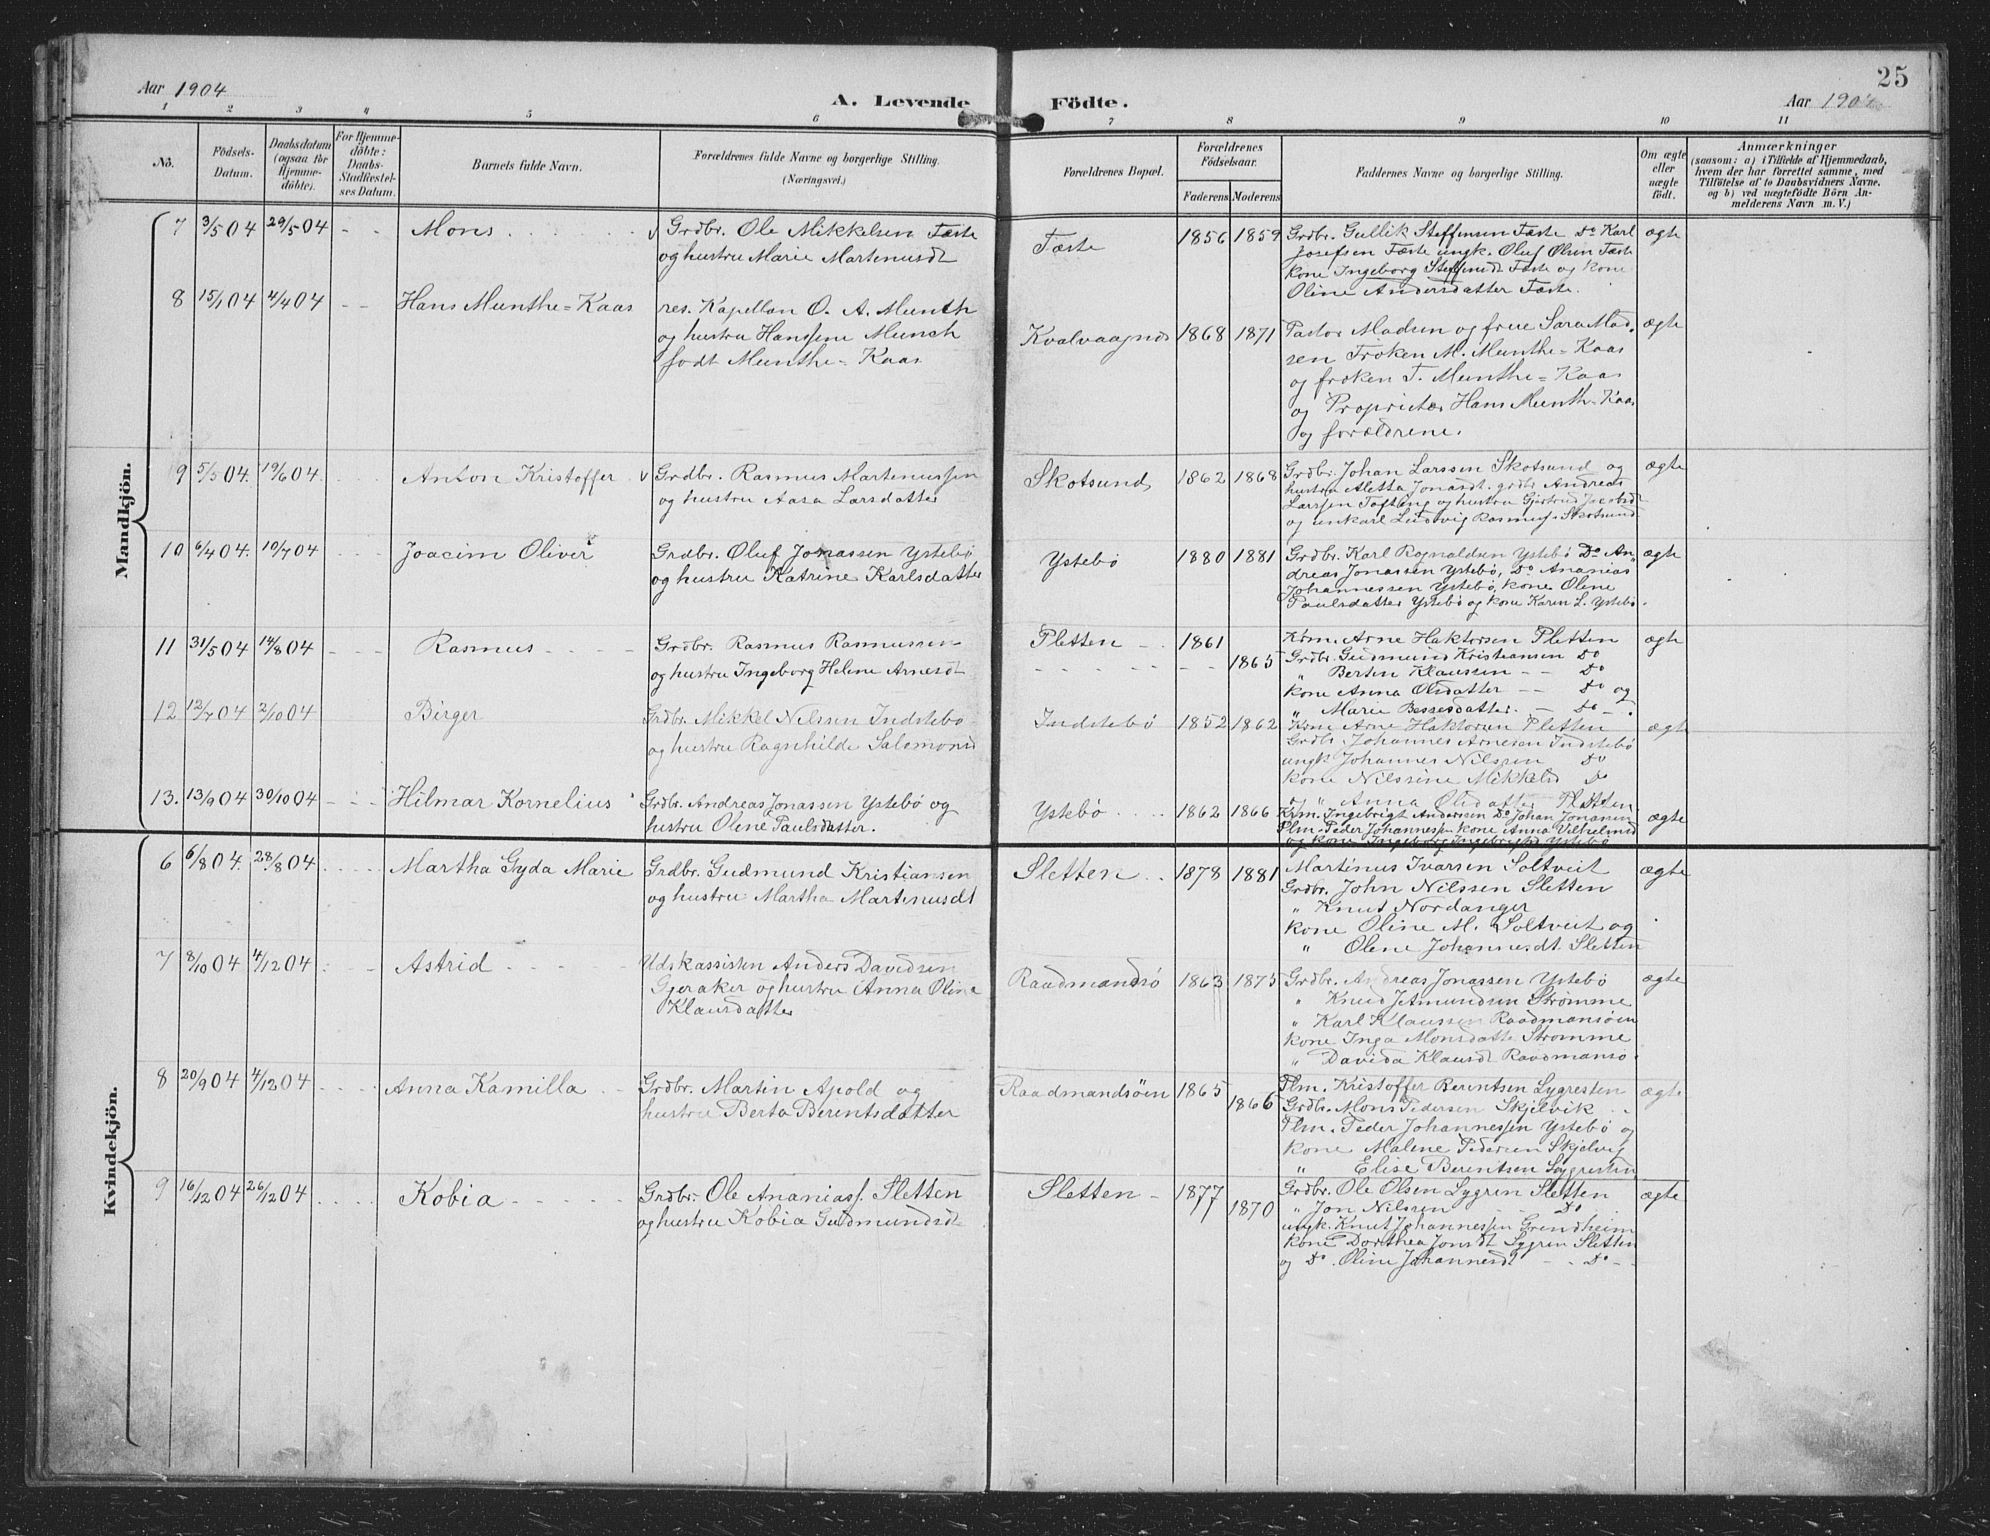 Aar 1904
A. Levende Födte.
Aar 190
25
1 2 3 4 5 6 7 8 9 10 11
No.
Födsels-
Datum.
Daabsdatum
(ogsaa for
Hjemme-
döbte).
For Hjemme-
döbte:
Daabs-
Stadfæstel-
ses Datum.
Barnets fulde Navn.
Forældrenes fulde Navne og borgerlige Stilling.
(Næringsvei.)
Forældrenes Bopæl.
Forældrenes
Födselsaar.
Faderens Moderens
Faddernes Navne og borgerlige Stilling.
Om ægte
eller
uægte
födt.
Anmærkninger
(saasom: a) i Tilfælde af Hjemmedaab,
hvem der har forrettet samme, med
Tilföielse af to Daabsvidners Navne,
og b) ved uægtefödte Börn An-
melderens Navn m. V.)
Mandkjön.
7 3/5 04 29/5 04 - - Mons
Grdbr. Ole Mikkelsen Tæste
og hustru Marie Martenusdt
Tæste 1856 1859
Grdbr. Gullik Steffensen Tæste Do Karl
Josefsen Tæste ungk. Oluf Olsen Tæste
kone Ingeborg Steffensdt Tæste og kone
Oline Andersdatter Tæste.
ægte
8 15/1 04 4/4 04 - - Hans Munthe-Kaas
res. Kapellan O. A. Munch
og hustru Hansine Munch
født Munthe-Kaas
Kvalvaagnes 1868 1871
Pastor Madsen og frue Sara Mad-
sen Frøken M. Munthe-Kaas
og frøken T. Munthe-Kaas
og Proprietær Hans Munth-Kaas
og forældrene.
ægte
9 5/5 04. 19/6 04 Anton Kristoffer
v Grdbr. Rasmus Martenussen
og hustru Aasa Larsdatter
Skotsund 1862 1868
Grdbr. Johan Larssen Skotsund og
hustru Aletta Jonasdt. grdbr Andreas
Larssen Toftang og hustru Gjertrud Jacobsdt
og unkarl Ludvig Rasmusf. Skotsund
ægte
10 6/4 04. 10/7 04 Joacim Oliver
Grdbr. Oluf Jonassen Ystebø
og hustru Katrine Karlsdatter
Ystebø 1880 1881
Grdbr. Karl Rognaldsen Ystebø Do An-
dreas Jonassen Ystebø, Do Ananias
Johannessen Ystebø, kone Olene
Paulsdatter Ystebø og kone Karen L. Ystebø.
ægte
11 31/5 04 14/8 04 - - - Rasmus
Grdbr. Rasmus Rasmussen
og hustru Ingeborg Helene Arnesdt
Sletten 1861
1865
Krm. Arne Haktorsen Sletten
Grdbr. Gudmund Kristiansen Do
" Berten Klaussen - - Do
kone Anna Olsdatter - - Do og
" Marie Bessesdatter. - Do - .
ægte
12 12/7 04 2/10 04 Birger
Grdbr. Mikkel Nilssen Indstebø
og hustru Ragnhilde Salomonsd
Indstebø 1852 1862
Krm Arne Haktorsen Sletten
Grdbr. Johannes Arnesen Indstebø
ungk Johannes Nilssen Do
kone Nilssine Mikkelsd Do
og " Anna Olsdatter Sletten
ægte
13. 13/9 04 30/10 04 - - - Hilmar Kornelius
Grdbr. Andreas Jonassen Ystebø og
hustru Olene Paulsdatter.
Ystebø 1862 1866
Krm. Ingebrigt Andersen Do Johan Jonassen
Plm. Peder Johannessen kone Anna Vilhelmsd
og kone Ingeborg Ingebrigtsd Ystebø
ægte
Kvindekjön.
6 6/8 04. 28/8 04 Martha Gyda Marie
Grdbr. Gudmund Kristiansen
og hustru Martha Martenusdt
Sletten 1878 1881
Martinus Ivarsen Soltveit
Grdbr. John Nilssen Sletten
" Knut Nordanger
kone Oline M. Soltveit og
" Olene Johannesdt Sletten
ægte
7 8/10 04 4/12 04 Astrid
Udskassisten Anders Davidsen
Gjeraker og hustru Anna Oline
Klausdatter
Raadmandsø 1863 1875
Grdbr. Andreas Jonassen Ystebø
" Knud Jetmundsen Strømme
" Karl Klaussen Raadmansøen
kone Inga Monsdatter Strømme
" Davida Klausdt Raadmansø.
ægte
8 20/9 04 4/12 04 Anna Kamilla
Grdbr. Martin Apold og
hustru Berta Berentsdatter
Raadmandsöen 1865
1866
Plm. Kristoffer Berentsen Lygresten
Grdbr. Mons Pedersen Skjelvik
Plm. Peder Johannessen Ystebø og
kone Malene Pedersen Skjelvig
" Elise Berentsen Lygresten
ægte
9 16/12 04 26/12 04 Kobia
Grdbr. Ole Ananiasf. Sletten
og hustru Kobia Gudmundsdt
Sletten 1877
1870
Grdbr. Ole Olsen Lygren Sletten
" Jon Nilssen Do
ungk. Knut Johannessen Grendheim
kone Dorthea Jonsdt Lygren Sletten
og Do. Oline Johannesdt - - Do - -
ægte